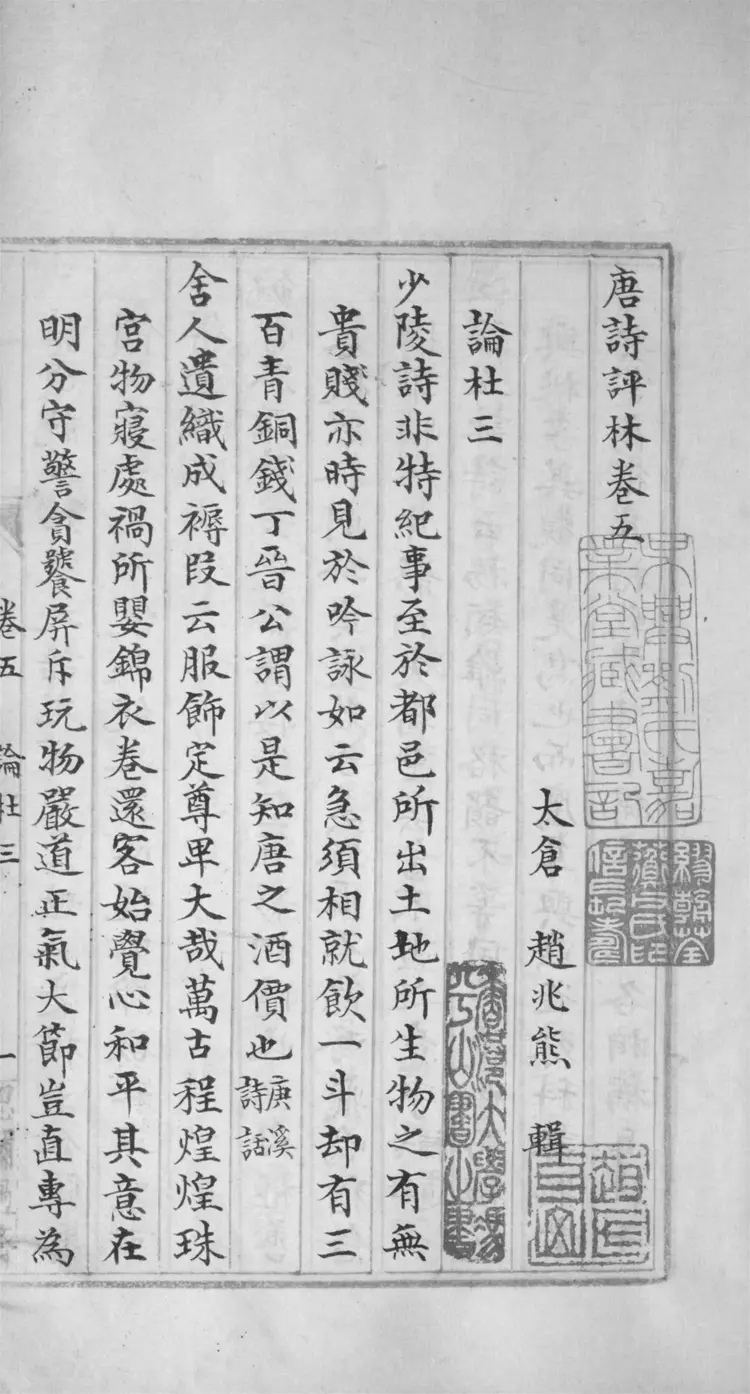 唐詩評林卷五
太倉 趙兆熊 輯
論杜三
少陵詩非特紀事至於都邑所出土地所生物之有無
貴賤亦時見於吟詠如云急須相就飲一斗却有三
百青銅錢丁晉公謂以是知唐之酒價也庚溪詩話
舍人遺織成褥段云服飾定尊卑大哉萬古程煌煌珠
宮物寢處禍所嬰錦衣卷還客始覺心和平其意在
明分守警貪饕屏斥玩物嚴道正氣大節豈直專為
卷五 論杜三 一
吳興劉氏嘉業堂藏書記